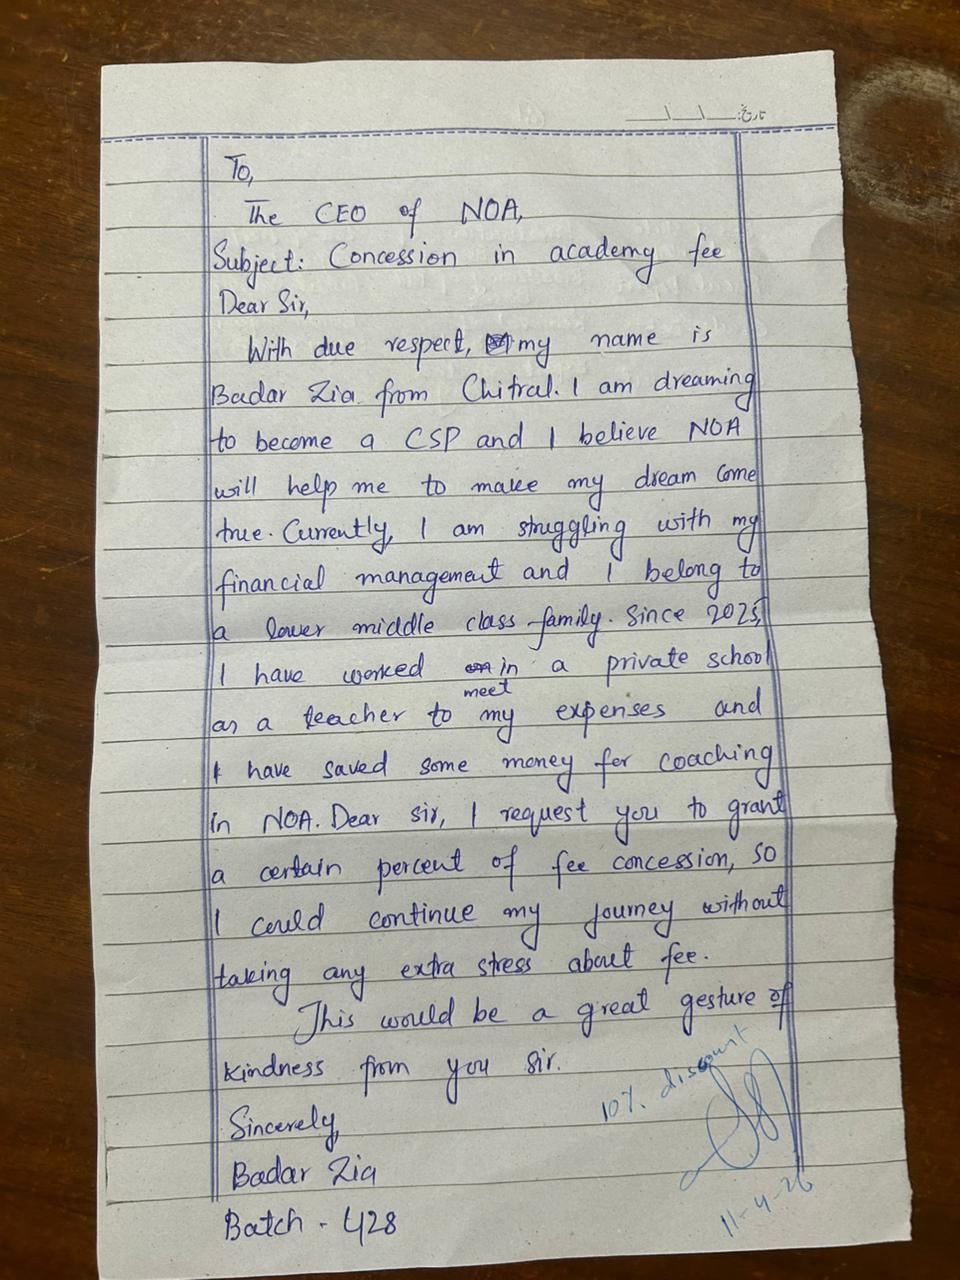 تاریخ:
To,
The CEO of NOA,
Subject: Concession in academy fee
Dear Sir,
With due respect, my name is
Badar Zia from Chitral. I am dreaming
to become a CSP and I believe NOA
will help me to make my dream come
true. Currently, I am struggling with my
financial management and I belong to
a lower middle class family. Since 2025,
I have worked in a private school
as a teacher to meet my expenses and
I have saved some money for coaching
in NOA. Dear sir, I request you to grant
a certain percent of fee concession, so
I could continue my journey without
taking any extra stress about fee.
This would be a great gesture of
kindness from you sir.
Sincerely,
Badar Zia
Batch - 428
10%. discount
11-4-26